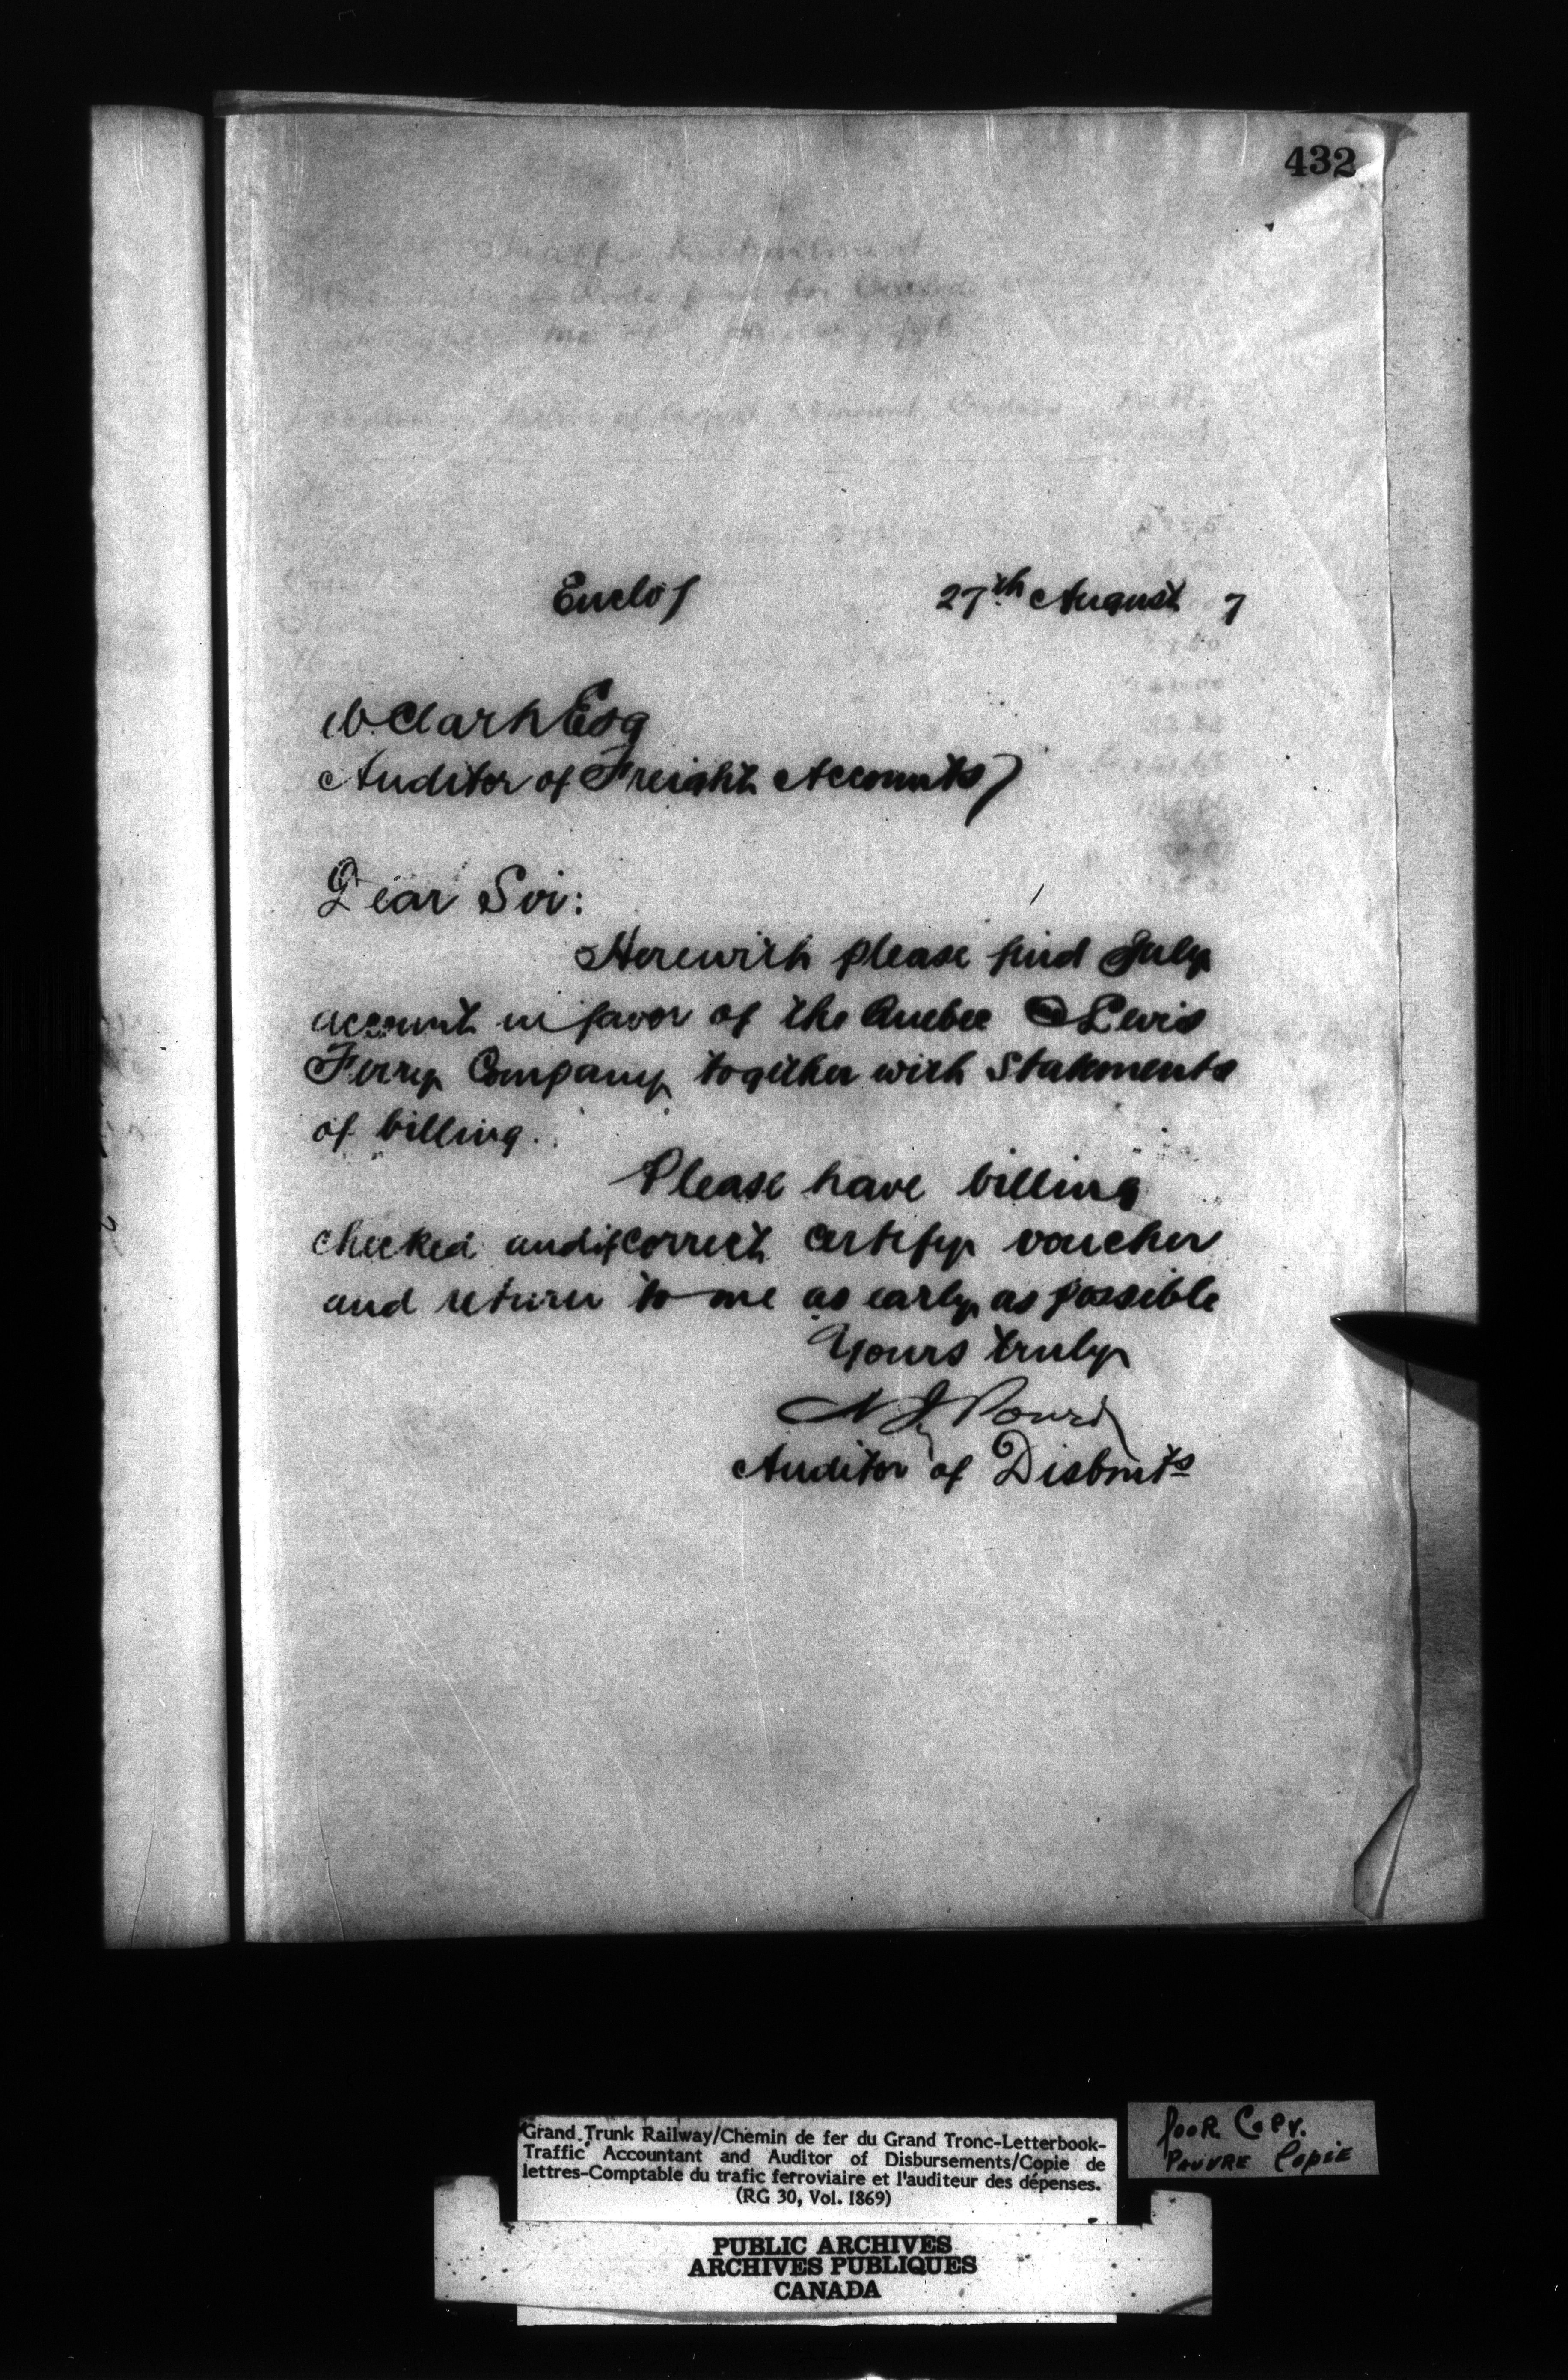 432
Enclos
27th August 7
W. Clark Esq
Auditor of Freight Accounts
Dear Sir:
Herewith please find July
account in favor of the Quebec & Levis
Ferry Company together with Statements
of billing.
Please have billing
checked and if correct certify voucher
and return to me as early as possible
Yours truly
N J Power
Auditor of Disbmts
Grand Trunk Railway/Chemin de fer du Grand Tronc-Letterbook-
Traffic Accountant and Auditor of Disbursements/Copie de
lettres-Comptable du trafic ferroviaire et l'auditeur des dépenses.
(RG 30, Vol. 1869)
POOR COPY.
PAUVRE COPIE
PUBLIC ARCHIVES
ARCHIVES PUBLIQUES
CANADA